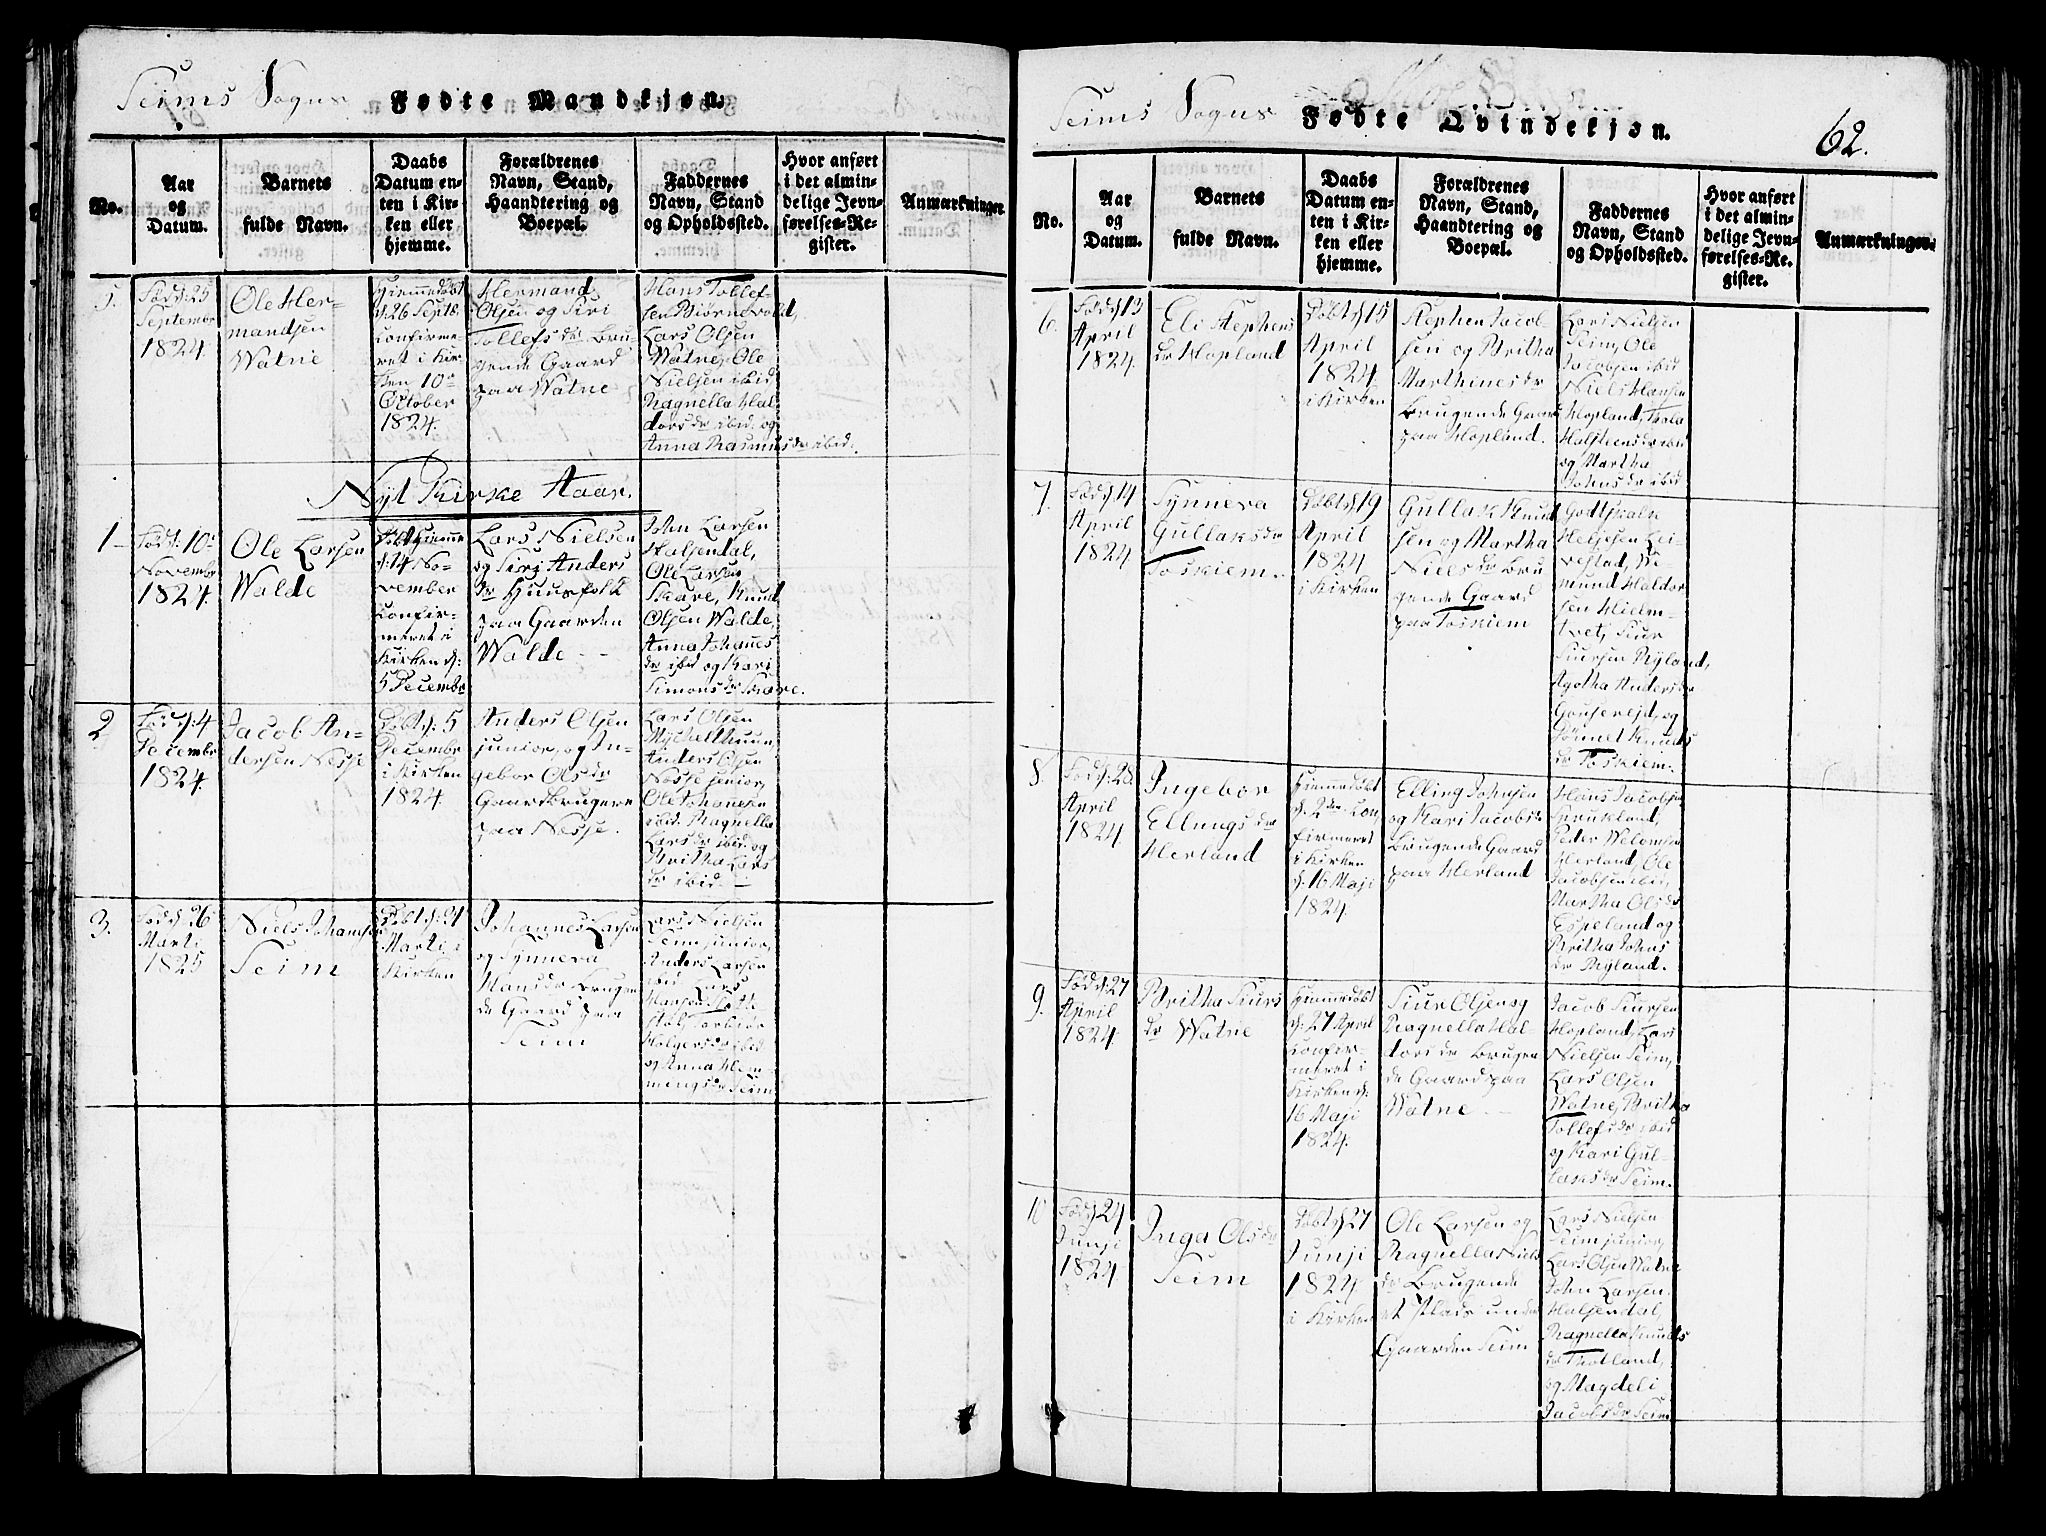 Seims Sogns
Fødte Mandkjøn.
No.
Aar
og
Datum.
Barnets
fulde Navn.
Daabs
Datum en-
ten i Kir-
ken eller
hjemme.
Forældrenes
Navn, Stand,
Haandtering og
Boepæl.
Faddernes
Navn, Stand
og Opholdssted.
Hvor anført
i det almin-
delige Jevn-
førelses-Re-
gister.
Anmærkninger.
5.
Fød d: 25
Septembr
1824.
Ole Her-
mandsen
Watne
Hiemmedøbt
d: 26 Septb.
Confirme-
ret i Kir-
ken 10de
October
1824.
Hermand
Olsen og Siri
Tollefsdr Bru-
gende Gaard
paa Watne
Hans Tollef-
sen Biørnevold,
Lars Olsen
Watne, Ole
Nielsen ibid
Ragnella Hal-
dorsdr ibid. og
Anna Rasmusdr ibid.
Nyt Kirke Aar.
1
Fød d: 10de
Novembr
1824.
Ole Larsen
Walde
Døbt hiemme
d: 14 No-
vember
Confir-
meret i
Kirken d:
5 Decembr
Lars Nielsen
og Siri Anders
dr Huusfolk
paa Gaarden
Walde
John Larsen
Halsendal,
Ole Larsen
Skare, Knud
Olsen Walde,
Anna Johanes
dr ibid og Kari
Simonsdr Skare.
2
Fød d: 4
Decembr
1824.
Jacob An-
dersen Nesse
Døbt d: 5
Decembr
i Kirken
1824.
Anders Olsen
junior, og In-
gebor Olsdr
Gaardbrugere
paa Nesse.
Lars Olsen
Mycheltuun,
Anders Olsen
Nesse senior,
Ole Johanesen
ibid. Ragnella
Larsdr ibid. og
Britha Lars
dr ibid.
3.
Fød d: 26
Marti
1825
Niels Johannesen
Seim
Døbt d: 27
Marti, i
Kirken
Johannes Larsen
og Synneva
Hansdr Brugen
de Gaard paa
Seim
Lars Nielsen
Seim junior,
Anders Larsen
ibid Lars
Hansen
Holgersdr ibid
og Anna Hem-
mingsdr Seim
Seims Sogns
Fødte Qvindekjøn.
62.
No.
Aar
og
Datum.
Barnets
fulde Navn.
Daabs
Datum en-
ten i Kir-
ken eller
hjemme.
Forældrenes
Navn, Stand,
Haandtering og
Boepæl.
Faddernes
Navn, Stand
og Opholdssted.
Hvor anført
i det almin-
delige Jevn-
førelses-Re-
gister.
Anmærkninger.
6.
Fød d 13
April
1824.
Eli Stephens
dr Hopland
Døbt d 15
April
1824.
i Kirken
Stephen Jacob-
sen og Britha
Marthinesdr
Brugende Gaard
paa Hopland.
Lars Nielsen
Seim, Ole
Jacobsen ibid
Niels Hansen
Hopland,
Halsteensdr ibid
og Martha
Johnsdr ibid
7.
Fød d 14
April
1824
Synneva
Gullaksdr
Toskiem.
Døbt d 19
April
1824
i Kirken
Gullak Knud
sen og Martha
Nielsdr Bru
gende Gaard
paa Toskiem
Godtskalk
Heljesen Lei-
restad,
mund Haldor
sen Hielm-
tvet, Siur
Siursen Ryland,
Agotha Andersdr
og
Knuds
dr Toskiem.
8
Fød d: 28
April
1824.
Ingebor
Ellingsdr
Herland
Hiemmedøbt
d. 2den Con
firmeret
i Kirken
d: 16 Maji
1824.
Elling Johnsen
og Kari Jacobsdr
Brugende Gaard
paa Herland
Hans Jacobsen
Peder Welomsen
Herland, Ole
Jacobsen ibid,
Martha Olsdr
Espeland og
Britha Johns
dr Ryland.
9.
Fød d: 27
April
1824.
Britha Siurs
dr Watne
Hiemmedøbt
d: 27 April
Confir-
meret i
Kirken d:
16 Maji
1824.
Siur Olsen og
Ragnella Hal-
dorsdr Brugen
de Gaard paa
Watne
Jacob Siursen
Hopland, Lars
Nielsen Seim,
Lars Olsen
Watne, Britha
Tollefsdr ibid
og Kari Gul-
laksdr Seim.
10
Fød d 24
Junji
1824
Inga Olsdr
Seim
Døbt d 27
Junji
1824
i Kirken
Ole Larsen og
Ragnella Niels
dr Brugende
et Plads under
Gaarden Seim
Lars Nielsen
Seim junior,
Lars Olsen Watne
John Larsen
Halsendal,
Ragnella Knuds
dr
og Magdeli
Jacobsdr Seim